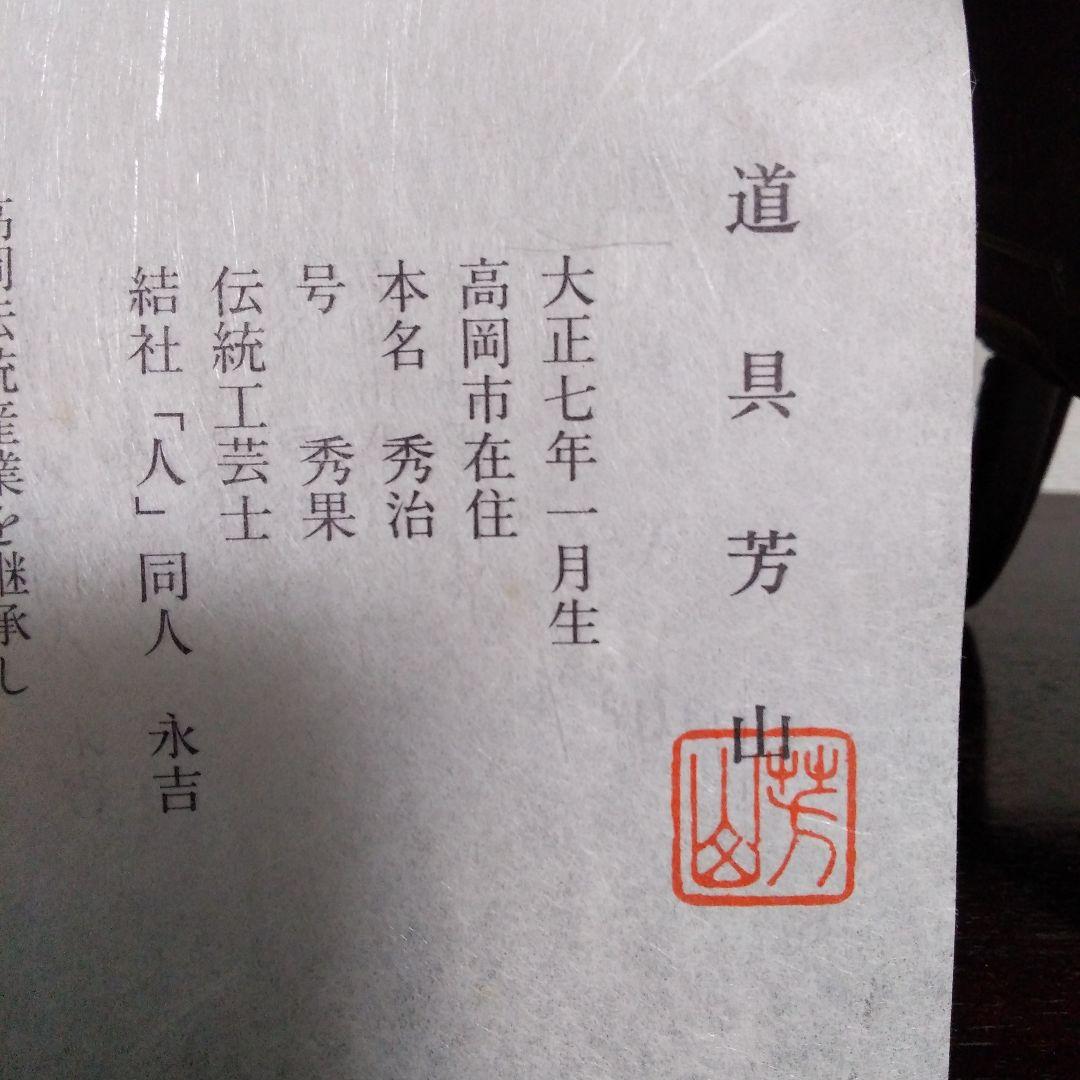 道具芳山
芳山
大正七年一月生
高岡市在住
本名 秀治
号 秀果
伝統工芸士
結社「人」同人 永吉
高岡伝統産業を継承し